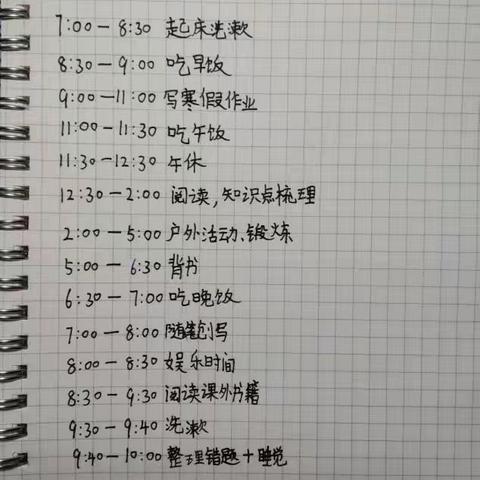 7:00－8:30 起床洗漱
8:30－9:00 吃早饭
9:00－11:00 写寒假作业
11:00－11:30 吃午饭
11:30－12:30 午休
12:30－2:00 阅读,知识点梳理
2:00－5:00 户外活动、锻炼
5:00－6:30 背书
6:30－7:00 吃晚饭
7:00－8:00 随笔创写
8:00－8:30 娱乐时间
8:30－9:30 阅读课外书籍
9:30－9:40 洗漱
9:40－10:00 整理错题+睡觉